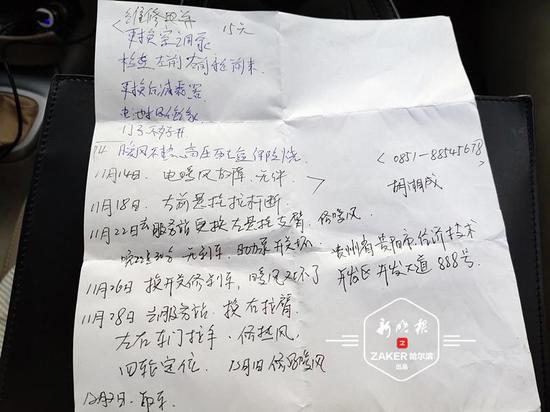 维修费用 15元
更换空调泵
检查左前右前轮刹车
更换后减震器
门打不开
暖风不热 高压 保险烧
11月14日. 电暖风故障. 无件.
11月18日. 右前悬挂拉杆断.
11月22日去服务站更换左悬挂支臂. 修暖风.
晚22点30分 无刹车. 助力泵开关坏.
11月26日 换开关修刹车, 暖风还不了
11月28日 去服务站. 换右拉臂.
左右车门拉手. 修热风,
四轮定位. 12月1日修好暖风
12月2日. 取车.
0851-88545678
胡湘成
贵州省贵阳市经济技术
开发区开发大道888号.
新晚报
ZAKER哈尔滨
出品